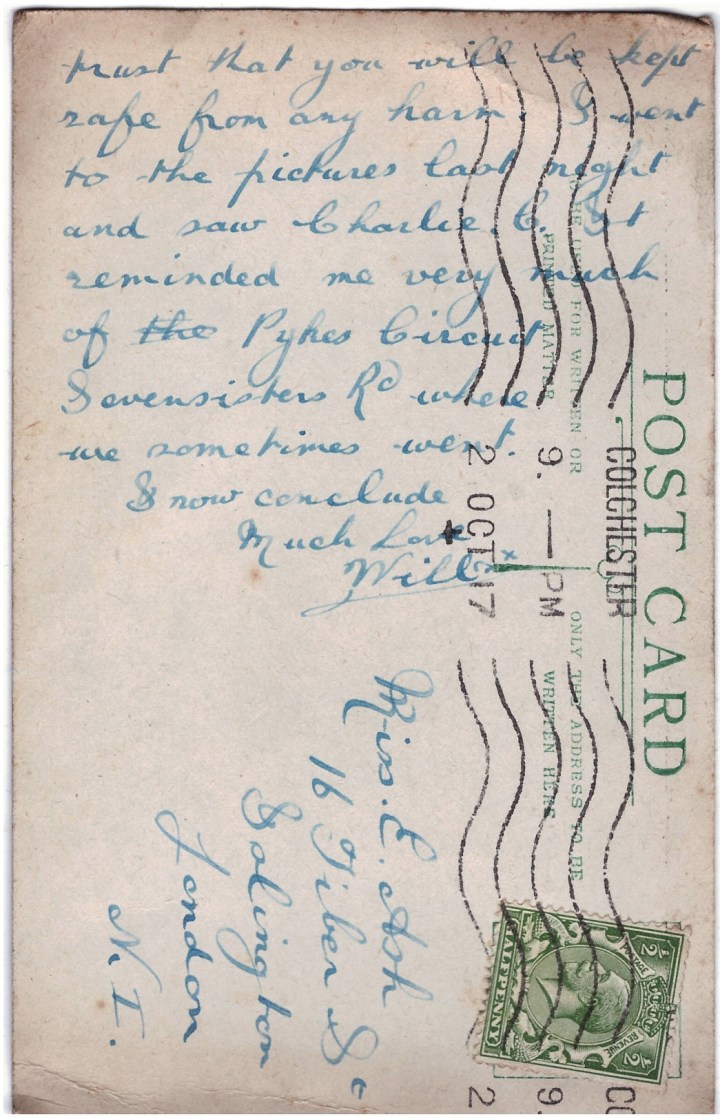 trust that you will be kept
safe from any harm. I went
to the pictures last night
and saw Charlie. C. It
reminded me very much
of the Pykes Circuit
Sevensisters Rd where
we sometimes went.
I now conclude
Much Love
Will xxx
POST CARD
TO BE USED FOR WRITTEN OR
PRINTED MATTER
ONLY THE ADDRESS TO BE
WRITTEN HERE
COLCHESTER
9. — PM
2 OCT 17
Miss. E. Ash
16 Tiber St
Islington
London
N. I.
POSTAGE
REVENUE
1/2 1/2
HALFPENNY
CO
9
2